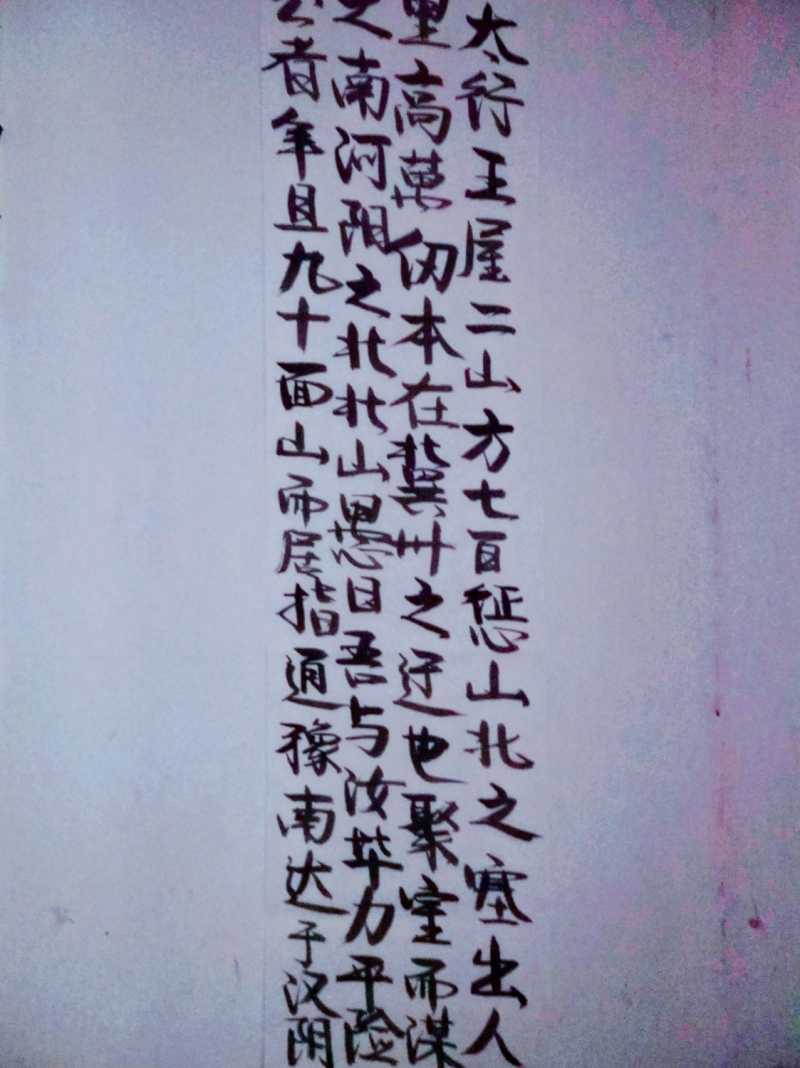 太行王屋二山方七百惩山北之塞出入
里高萬仞本在冀州之迂也聚室而谋
之南河阳之北北山愚曰吾与汝毕力平险
公者年且九十面山而居指通豫南达于汉阴